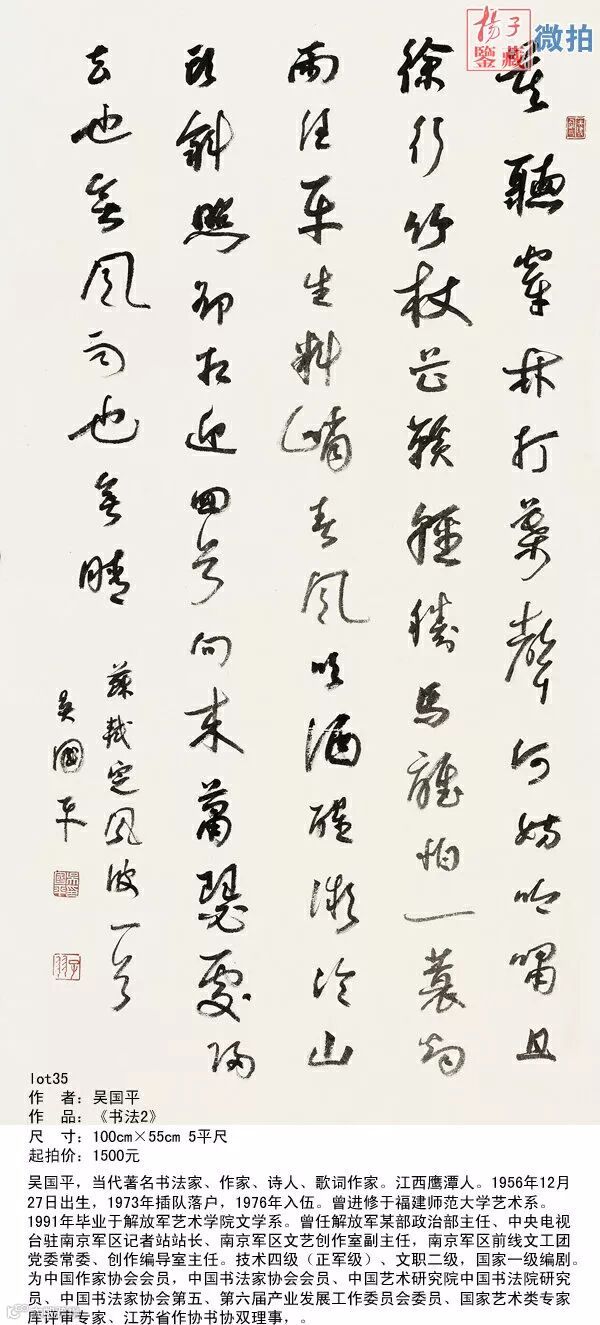 揚子
鑒藏
微拍
莫聽穿林打葉聲何妨吟嘯且
徐行竹杖芒鞋輕勝馬誰怕一蓑烟
雨任平生料峭春風吹酒醒微冷山
頭斜照却相迎回首向來蕭瑟處歸
去也無風雨也無晴
蘇軾定風波一首
吳國平
lot35
作 者：吴国平
作 品：《书法2》
尺 寸：100cm×55cm 5平尺
起拍价：1500元
吴国平，当代著名书法家、作家、诗人、歌词作家。江西鹰潭人。1956年12月
27日出生，1973年插队落户，1976年入伍。曾进修于福建师范大学艺术系。
1991年毕业于解放军艺术学院文学系。曾任解放军某部政治部主任、中央电视
台驻南京军区记者站站长、南京军区文艺创作室副主任，南京军区前线文工团
党委常委、创作编导室主任。技术四级（正军级）、文职二级，国家一级编剧。
为中国作家协会会员，中国书法家协会会员、中国艺术研究院中国书法院研究
员、中国书法家协会第五、第六届产业发展工作委员会委员、国家艺术类专家
库评审专家、江苏省作协书协双理事，。